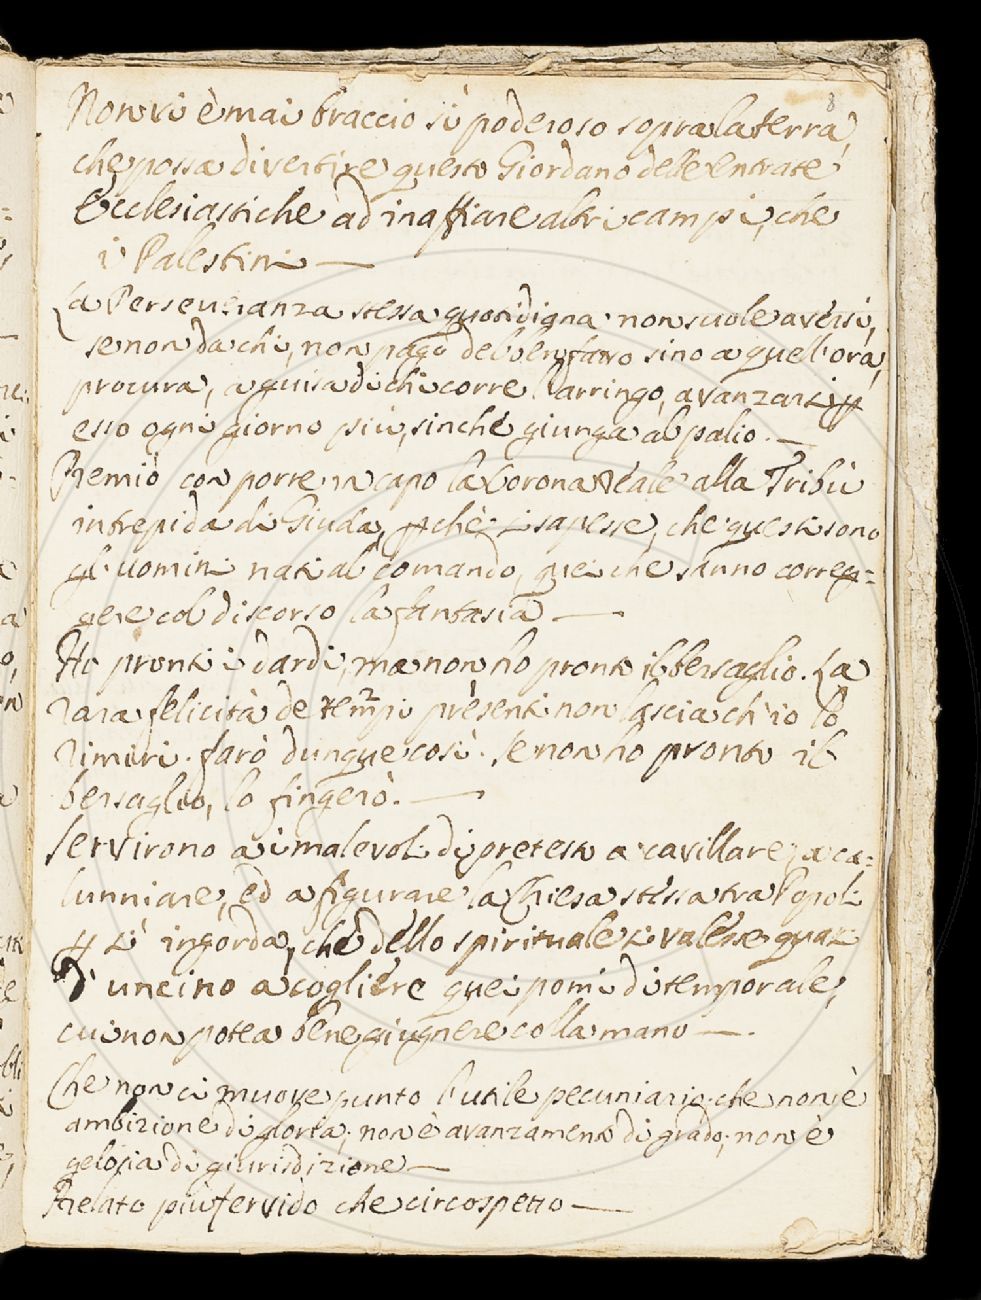 8
Non vi è mai braccio sì poderoso sopra la terra,
che possa divertire questo Giordano delle entrate
Ecclesiastiche ad inaffiare altri campi, che
i Palestini —
La Perseveranza stessa quotidiana non suole aversi,
se non da chi, non pago del ben fatto sino a quell'ora,
procura, a guisa di chi corre l'arringo, avanzarsi in
esso ogni giorno più, sinche giunga al palio. —
Premiò con porre in capo la Corona Reale alla Tribù
intrepida di Giuda, pchè si sapesse, che questi sono
gl'uomini nati al comando, quei che sanno correg=
gere col discorso la fantasia —
Ho pronti i dardi, ma non ho pronto il bersaglio. La
rara felicità de tempi presenti non lascia ch'io lo
rimiri. farò dunque così. Se non ho pronto il
bersaglio, lo fingerò. —
Servirono a i malevoli di pretesto a cavillare, a ca=
lunniare, ed a figurare la Chiesa stessa tra Popoli
p sì ingorda, che dello spirituale si valesse quasi
d'uncino a cogliere quei pomi di temporale,
cui non potea bene giugnere colla mano —.
Che non ci muove punto l'utile pecuniario, che non è
ambizione di gloria; non è avanzamento di grado; non è
gelosia di giurisdizione —
Prelato più fervido che circospetto —